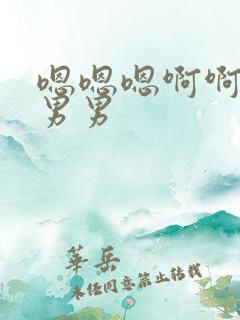 嗯嗯嗯啊啊
男男
華岳
未径同意禁止转载